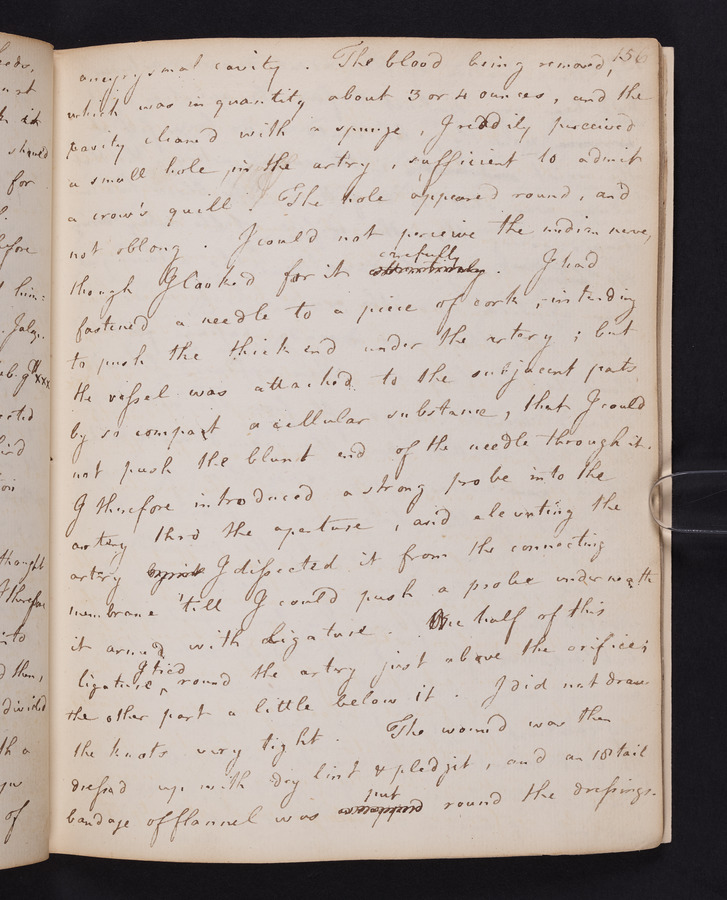 156
aneurysmal cavity. The blood being removed,
which was in quantity about 3 or 4 ounces, and the
cavity cleaned with a spunge, I readily perceived
a small hole in the artery, sufficient to admit
a crow's quill. The hole appeared round, and
not oblong. I could not perceive the median nerve,
carefully
though I looked for it attentively. I had
fastened a needle to a piece of cork, intending
to push the thick end under the artery; but
the vessel was attached to the subjacent parts
by so compact a cellular substance, that I could
not push the blunt end of the needle through it.
I therefore introduced a strong probe into the
artery thro the aperture, and elevating the
artery I dissected it from the connecting
membrane 'till I could push a probe underneath
it armed with ligature. One half of this
I tied
ligature ‸ round the artery just above the orifice;
the other part a little below it. I did not draw
the knots very tight. The wound was then
dressed up with dry lint & pledgit, and an 18 tail
put
bandage of flannel was wrapped round the dressings.